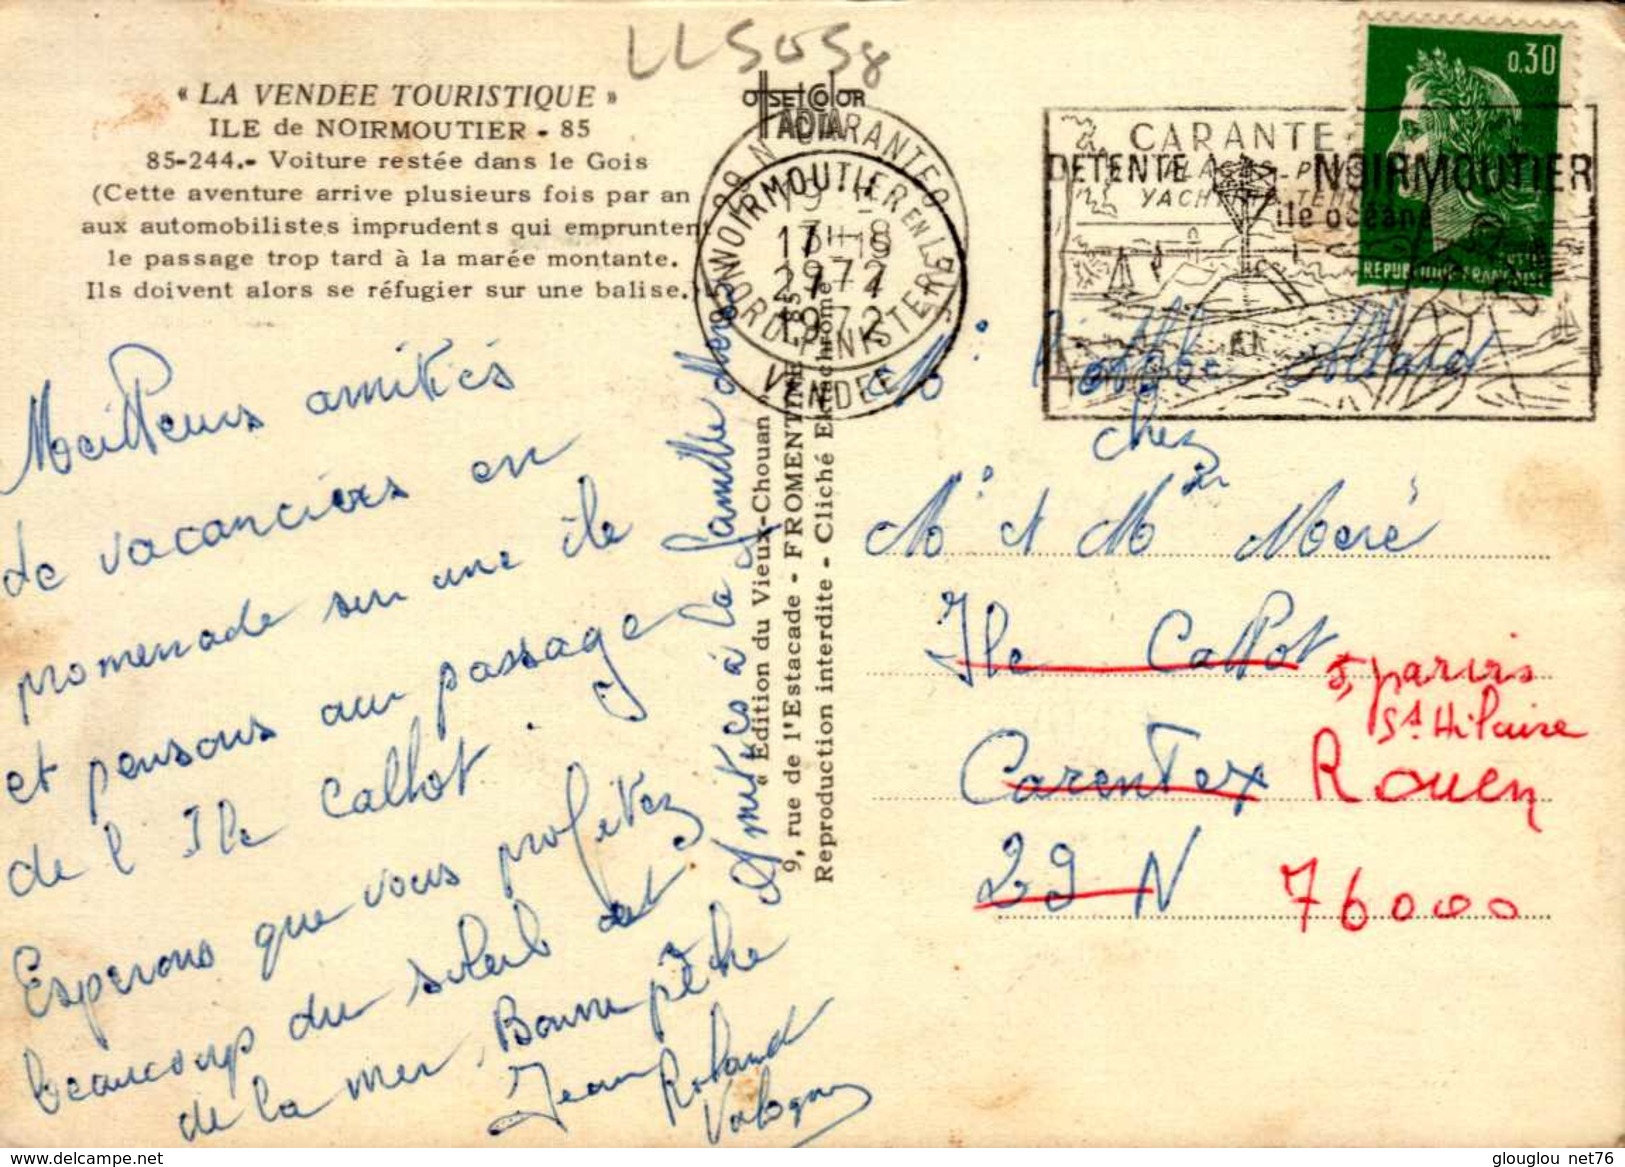 LL5058
« LA VENDEE TOURISTIQUE »
ILE de NOIRMOUTIER - 85
85-244.- Voiture restée dans le Gois
(Cette aventure arrive plusieurs fois par an
aux automobilistes imprudents qui emprunten
le passage trop tard à la marée montante.
Ils doivent alors se réfugier sur une balise.)
Meilleurs amitiés
de vacanciers en
promenade sur une île
et pensons au passage
de l'Ile Callot.
Esperons que vous profitez
beaucoup du soleil et
de la mer. Bonne pêche
Jean Roland
Amitiés à la famille
« Edition du Vieux-Chouan »
9, rue de l'Estacade - FROMENTINE - 85
Reproduction interdite - Cliché Ektachrome
OffSEtColOR
ADIA
29 N CARANTEC
NORD FINISTERE
NOIRMOUTIER EN L'ILE
17H15
1972
VENDEE
CARANTE
DETENTE A NOIRMOUTIER
île océane
0,30
REPUBLIQUE FRANÇAISE
M. l'Abbé Allard
chez
M. et Mme Meré
Ile Callot
5, parvis
St Hilaire
Carentex Rouen
29 N 76000
https://www.delcampe.net
glouglou net76